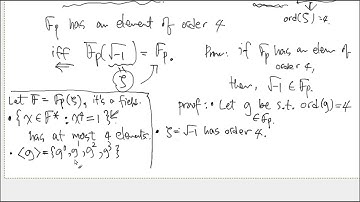 ord(ζ)=4
𝔽p has an element of order 4
iff 𝔽p(√-1) = 𝔽p.
ζ
Prove: if 𝔽p has an elem of order 4,
then, √-1 ∈ 𝔽p.
proof: • Let g be s.t. ord(g)=4
∈ 𝔽p.
• ζ=√-1 has order 4.
Let 𝔽 = 𝔽p(ζ), it's a field.
• {x ∈ 𝔽* : x⁴ = 1}
has at most 4 elements.
• ⟨g⟩ = {g⁰, g¹, g², g³}